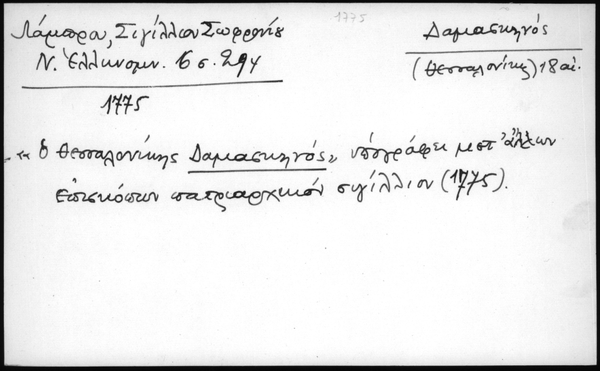 1775
Λάμπρου, Σιγίλλιον Σωφρονίου
Ν. Ἑλληνομν. 6 σ. 294
1775
Δαμασκηνός
(Θεσσαλονίκης) 18 αἰ.
"ὁ Θεσσαλονίκης Δαμασκηνός" ὑπογράφει μετ' ἄλλων
ἐπισκόπων πατριαρχικόν σιγίλλιον (1775).